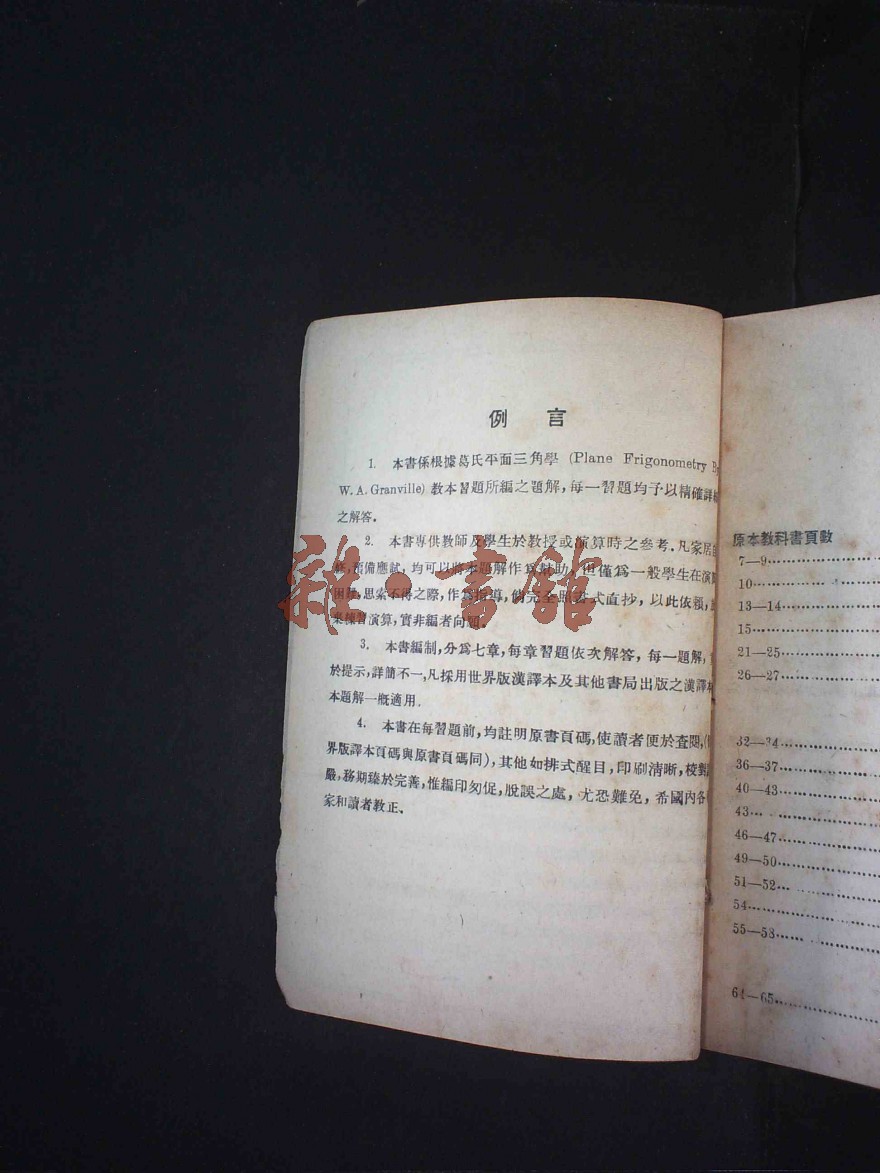 例 言
1. 本書係根據葛氏平面三角學 (Plane Frigonometry B
W. A. Granville) 教本習題所編之題解，每一習題均予以精確詳
之解答．
2. 本書專供教師及學生於教授或演算時之參考．凡家居自
修，預備應試，均可以將本題解作爲幫助，但僅爲一般學生在演
困難，思索不得之際，作爲指導，倘完全照書式直抄，以此依賴，
來練習演算，實非編者向題．
3. 本書編制，分爲七章，每章習題依次解答，每一題解，
於提示，詳簡不一，凡採用世界版漢譯本及其他書局出版之漢譯本
本題解一概適用．
4. 本書在每習題前，均註明原書頁碼，使讀者便於查閱，(
界版譯本頁碼與原書頁碼同)，其他如排式醒目，印刷清晰，校對
嚴，移期臻於完善，惟編印匆促，脫誤之處，尤恐難免，希國內各
家和讀者教正．
原本教科書頁數
7—9
10
13—14
15
21—25
26—27
32—34
36—37
40—43
43
46—47
49—50
51—52
54
55—58
64—65
雜·書館